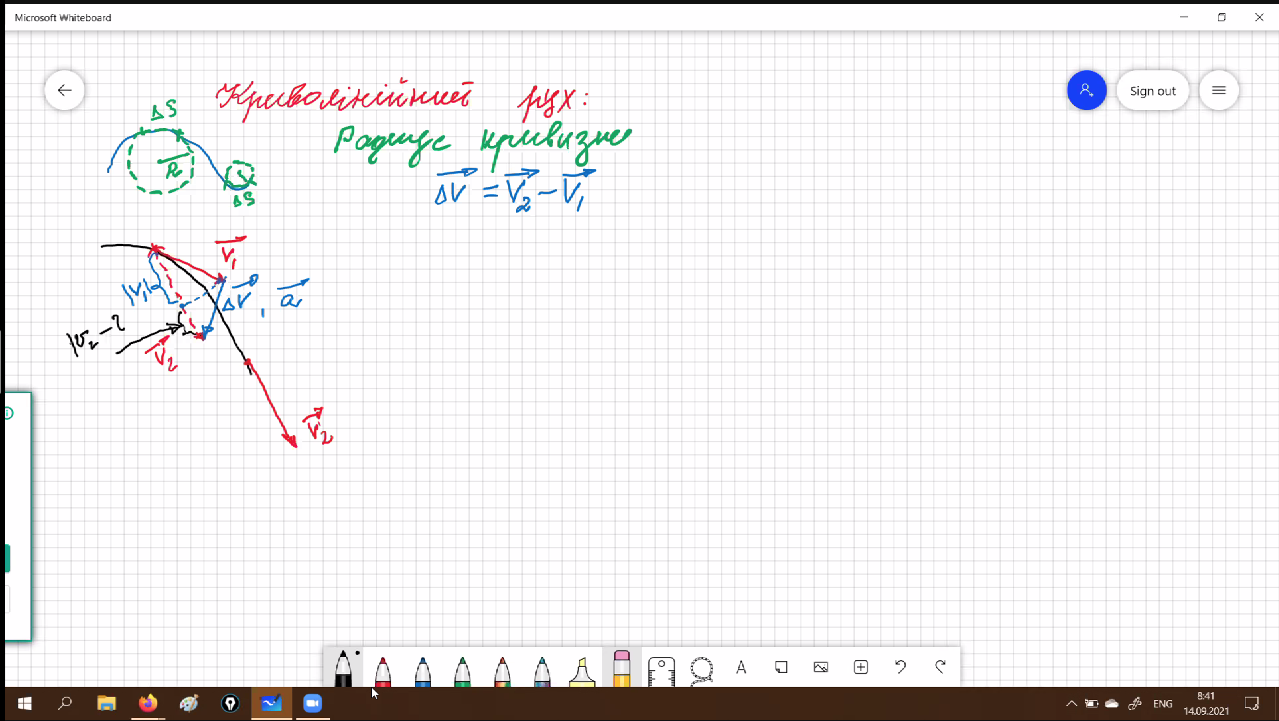 Microsoft Whiteboard
Sign out
Криволінійний рух:
ΔS
Радиус кривизне
R
ΔS
ΔV = V₂ − V₁
V₁
|V₁|
ΔV, a
V₂
V₂
A
ENG
8:41
14.09.2021